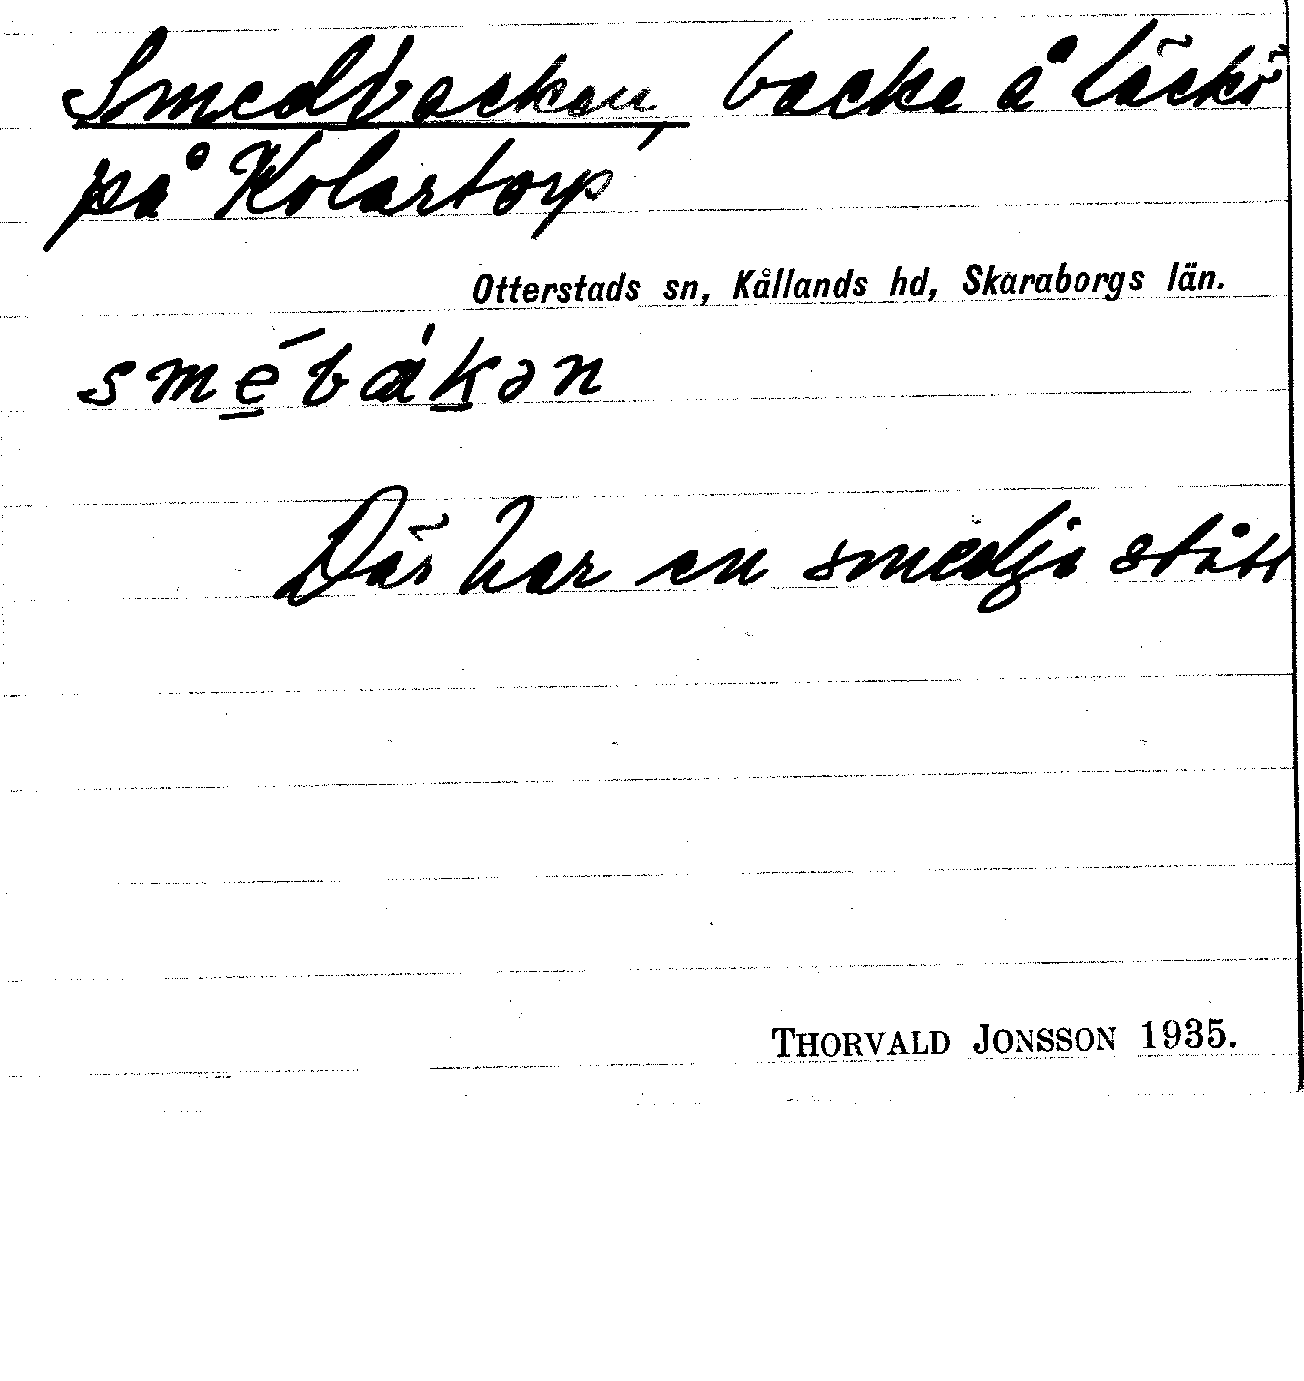 Smedbacken, backe å Läckö
på Kolartorp
Otterstads sn, Kållands hd, Skaraborgs län.
smé̲bákən
Där har en smedja stått
THORVALD JONSSON 1935.